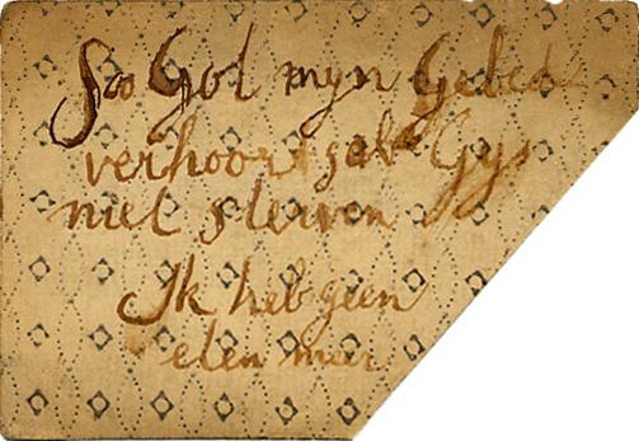 Soo God myn Gebed
verhoord sal Gys
niet sterven
Ik heb geen
eten meer